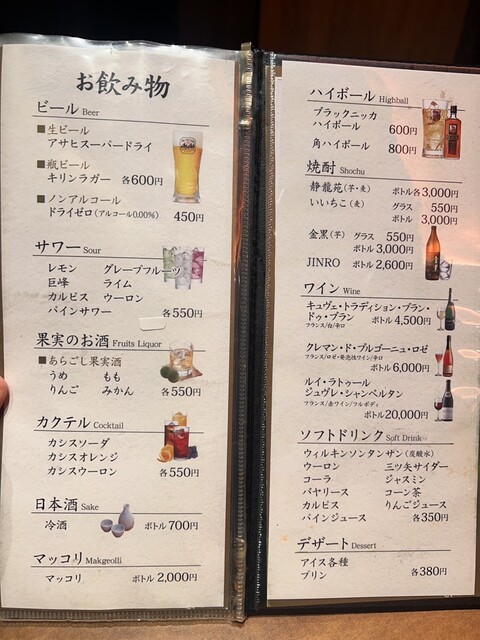 お飲み物
ビール Beer
■生ビール
アサヒスーパードライ
■瓶ビール
キリンラガー 各600円
■ノンアルコール
ドライゼロ(アルコール0.00%) 450円
サワー Sour
レモン グレープフルーツ
巨峰 ライム
カルピス ウーロン
パインサワー 各550円
果実のお酒 Fruits Liquor
■あらごし果実酒
うめ もも
りんご みかん 各550円
カクテル Cocktail
カシスソーダ
カシスオレンジ
カシスウーロン 各550円
日本酒 Sake
冷酒 ボトル 700円
マッコリ Makgeolli
マッコリ ボトル 2,000円
ハイボール Highball
ブラックニッカ
ハイボール 600円
角ハイボール 800円
焼酎 Shochu
静龍苑(芋・麦) ボトル各3,000円
いいちこ(麦) グラス 550円
ボトル 3,000円
金黒(芋) グラス 550円
ボトル 3,000円
JINRO ボトル 2,600円
ワイン Wine
キュヴェ・トラディション・ブラン・
ドゥ・ブラン ボトル 4,500円
フランス/白/辛口
クレマン・ド・ブルゴーニュ・ロゼ
フランス/ロゼ・発泡性ワイン/辛口
ボトル 6,000円
ルイ・ラトゥール
ジュヴレ・シャンベルタン
フランス/赤ワイン/フルボディ
ボトル 20,000円
ソフトドリンク Soft Drink
ウィルキンソンタンサン(炭酸水)
ウーロン 三ツ矢サイダー
コーラ ジャスミン
バヤリース コーン茶
カルピス りんごジュース
パインジュース 各350円
デザート Dessert
アイス各種
プリン 各380円